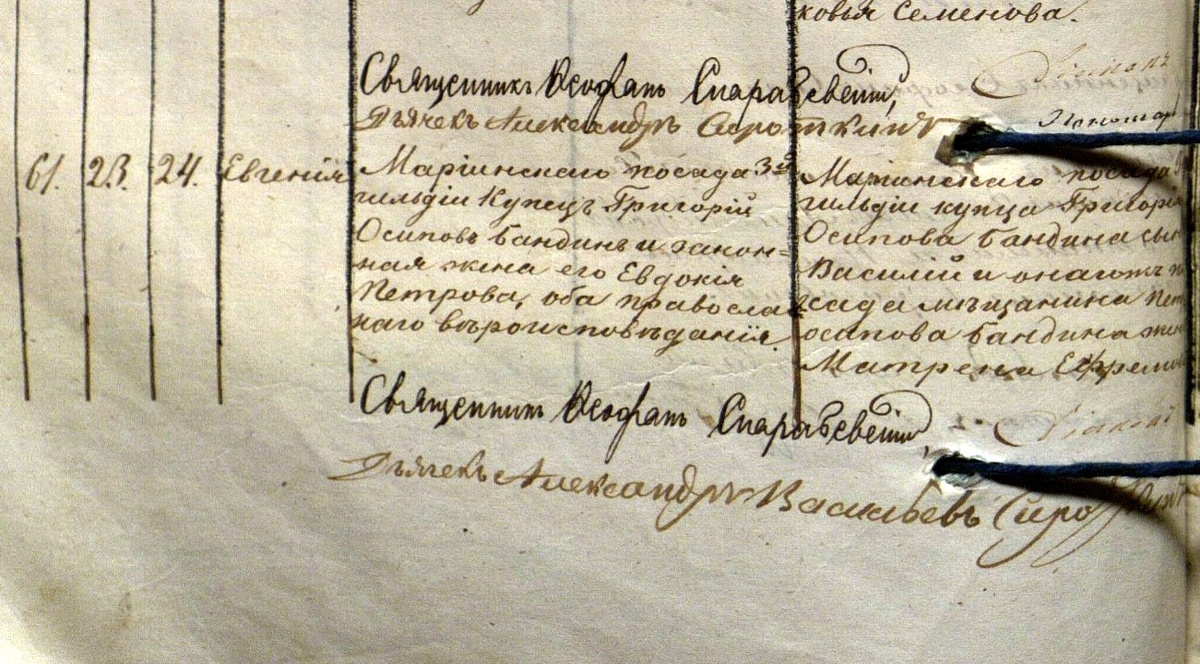 ковья Семенова.
Священникъ Ѳеофанъ
Дьячекъ Александръ Сироткинъ
61. 23. 24. Евгенія
Маріинскаго посада 3й
гильдіи Купецъ Григорій
Осиповъ Бандинъ и закон=
ная жена его Евдокія
Петрова, оба правосла
наго вѣроисповѣданія.
Маріинскаго посада
гильдіи купца Григорія
Осипова Бандина сын
Василій и онагожъ по
сада мѣщанина Петр
осипова Бандина жен
Матрена Ефремо
Священникъ Ѳеофанъ
Діаконъ
Дьячекъ Александръ Васильевъ